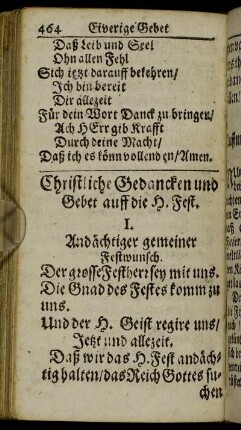 464 Eiverige Gebet
Daß Leib und Seel
Ohn allen Fehl
Sich ietzt darauff bekehren/
Ich bin bereit
Dir allezeit
Für dein Wort Danck zu bringen/
Ach HErr gib Krafft
Durch deine Macht/
Daß ich es könn vollenden/Amen.
Christliche Gedancken und
Gebet auff die H. Fest.
I.
Andächtiger gemeiner
Festwunsch.
Der grosse Festherr sey mit uns.
Die Gnad des Festes komm zu
uns.
Und der H. Geist regire uns/
Jetzt und allezeit.
Daß wir das H. Fest andäch-
tig halten/das Reich Gottes su-
chen